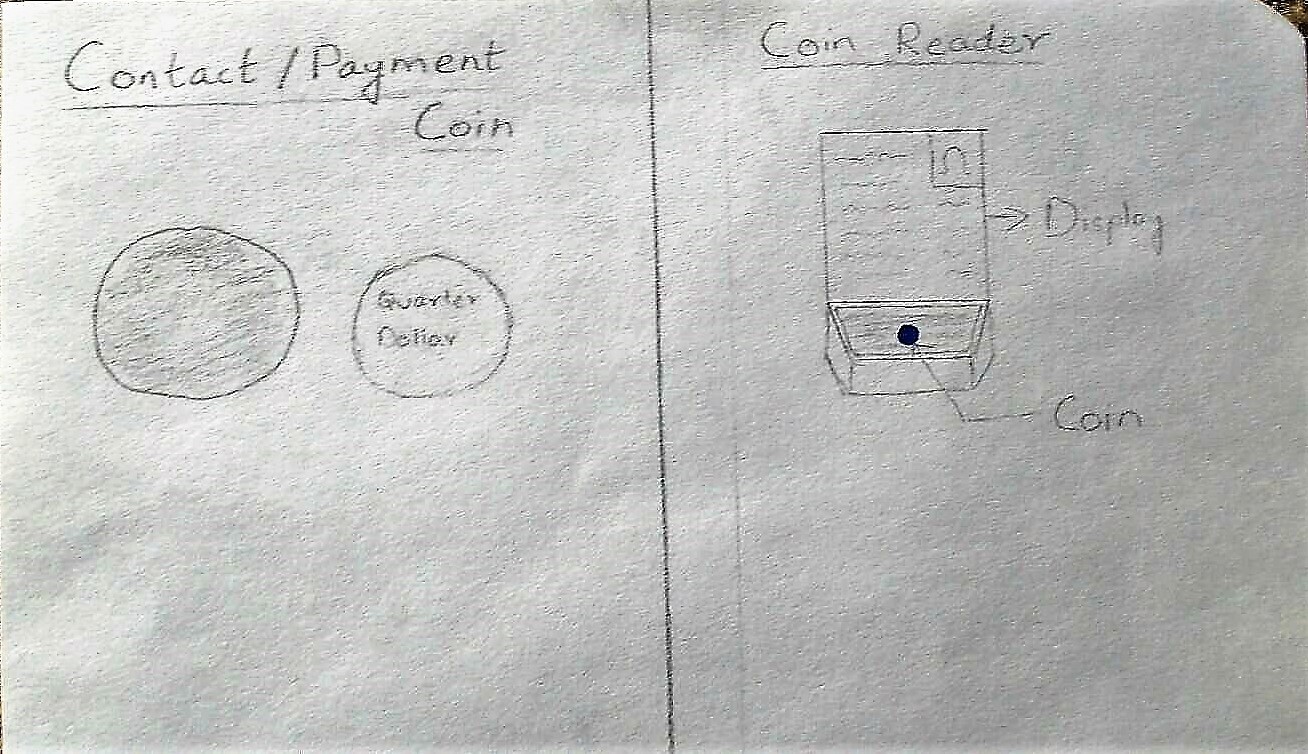 Contact / Payment
Coin
Quarter
Dollar
Coin Reader
Display
Coin